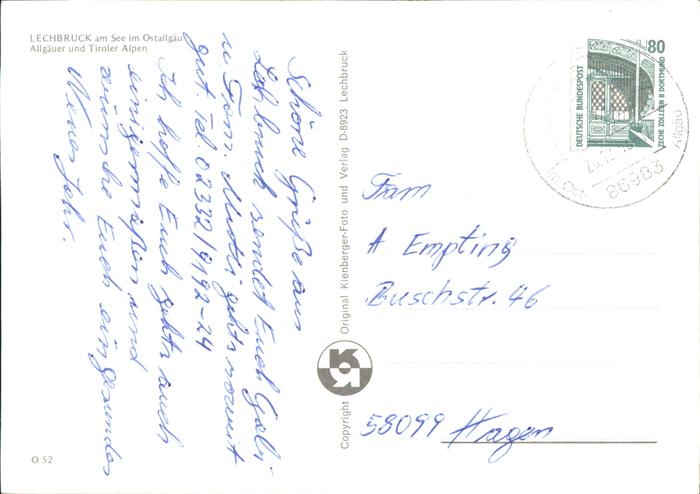 LECHBRUCK am See im Ostallgäu
Allgäuer und Tiroler Alpen
Schöne Grüße aus
Lechbruck sendet Euch Gabi
u. Tom. Mutti gehts soweit
gut. Tel 02332/9192-24
Ich hoffe Euch gehts auch
einigermaßen und
wünsche Euch ein gesundes
Neues Jahr.
O 52
Copyright
Original Kienberger-Foto und Verlag D-8923 Lechbruck
80
DEUTSCHE BUNDESPOST
ZECHE ZOLLERN II DORTMUND
86983
Allgäu
Fam
A Empting
Buschstr. 46
58099 Hagen